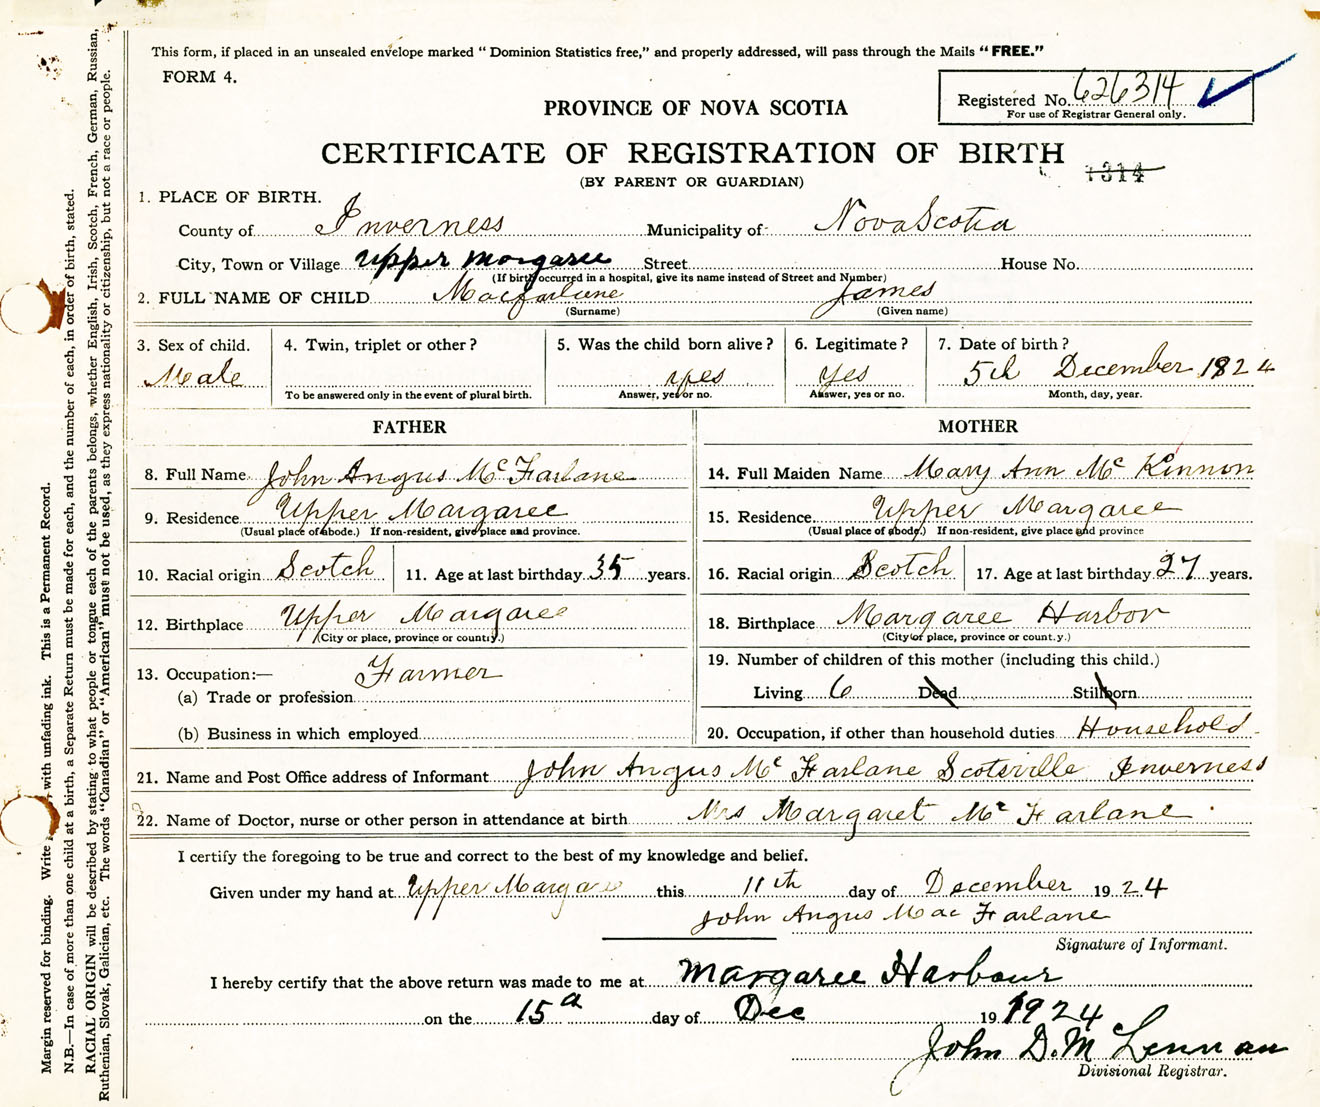 This form, if placed in an unsealed envelope marked "Dominion Statistics free," and properly addressed, will pass through the Mails "FREE."
FORM 4.
Registered No. 626314
For use of Registrar General only.
PROVINCE OF NOVA SCOTIA
CERTIFICATE OF REGISTRATION OF BIRTH
1314
(BY PARENT OR GUARDIAN)
1. PLACE OF BIRTH.
County of Inverness Municipality of Nova Scotia
City, Town or Village Upper Margaree Street House No.
(If birth occurred in a hospital, give its name instead of Street and Number)
2. FULL NAME OF CHILD Macfarlane James
(Surname) (Given name)
3. Sex of child. 4. Twin, triplet or other? 5. Was the child born alive? 6. Legitimate? 7. Date of birth?
Male yes yes 5th December 1924
To be answered only in the event of plural birth. Answer, yes or no. Answer, yes or no. Month, day, year.
FATHER MOTHER
8. Full Name John Angus Mc Farlane 14. Full Maiden Name Mary Ann Mc Kinnon
9. Residence Upper Margaree 15. Residence Upper Margaree
(Usual place of abode.) If non-resident, give place and province. (Usual place of abode.) If non-resident, give place and province
10. Racial origin Scotch 11. Age at last birthday 35 years. 16. Racial origin Scotch 17. Age at last birthday 27 years.
12. Birthplace Upper Margaree 18. Birthplace Margaree Harbor
(City or place, province or county.) (City or place, province or county.)
13. Occupation:— Farmer 19. Number of children of this mother (including this child.)
(a) Trade or profession Living 6 Dead Stillborn
(b) Business in which employed 20. Occupation, if other than household duties Household
21. Name and Post Office address of Informant John Angus Mc Farlane Scotsville Inverness
22. Name of Doctor, nurse or other person in attendance at birth Mrs Margaret Mc Farlane
I certify the foregoing to be true and correct to the best of my knowledge and belief.
Given under my hand at Upper Margaree this 11th day of December 1924
John Angus Mac Farlane
Signature of Informant.
I hereby certify that the above return was made to me at Margaree Harbour
on the 15th day of Dec 19 1924
John D. McLennan
Divisional Registrar.
Margin reserved for binding. Write with unfading ink. This is a Permanent Record.
N.B.—In case of more than one child at a birth, a Separate Return must be made for each, and the number of each, in order of birth, stated.
RACIAL ORIGIN will be described by stating to what people or tongue each of the parents belongs, whether English, Irish, Scotch, French, German, Russian,
Ruthenian, Slovak, Galician, etc. The words "Canadian" or "American" must not be used, as they express nationality or citizenship, but not a race or people.